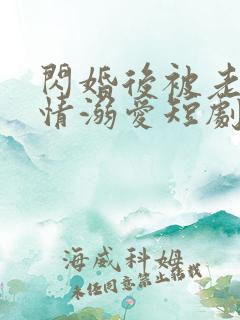 閃婚後被老
情溺愛短劇
海威科姆
未經同意禁止轉載